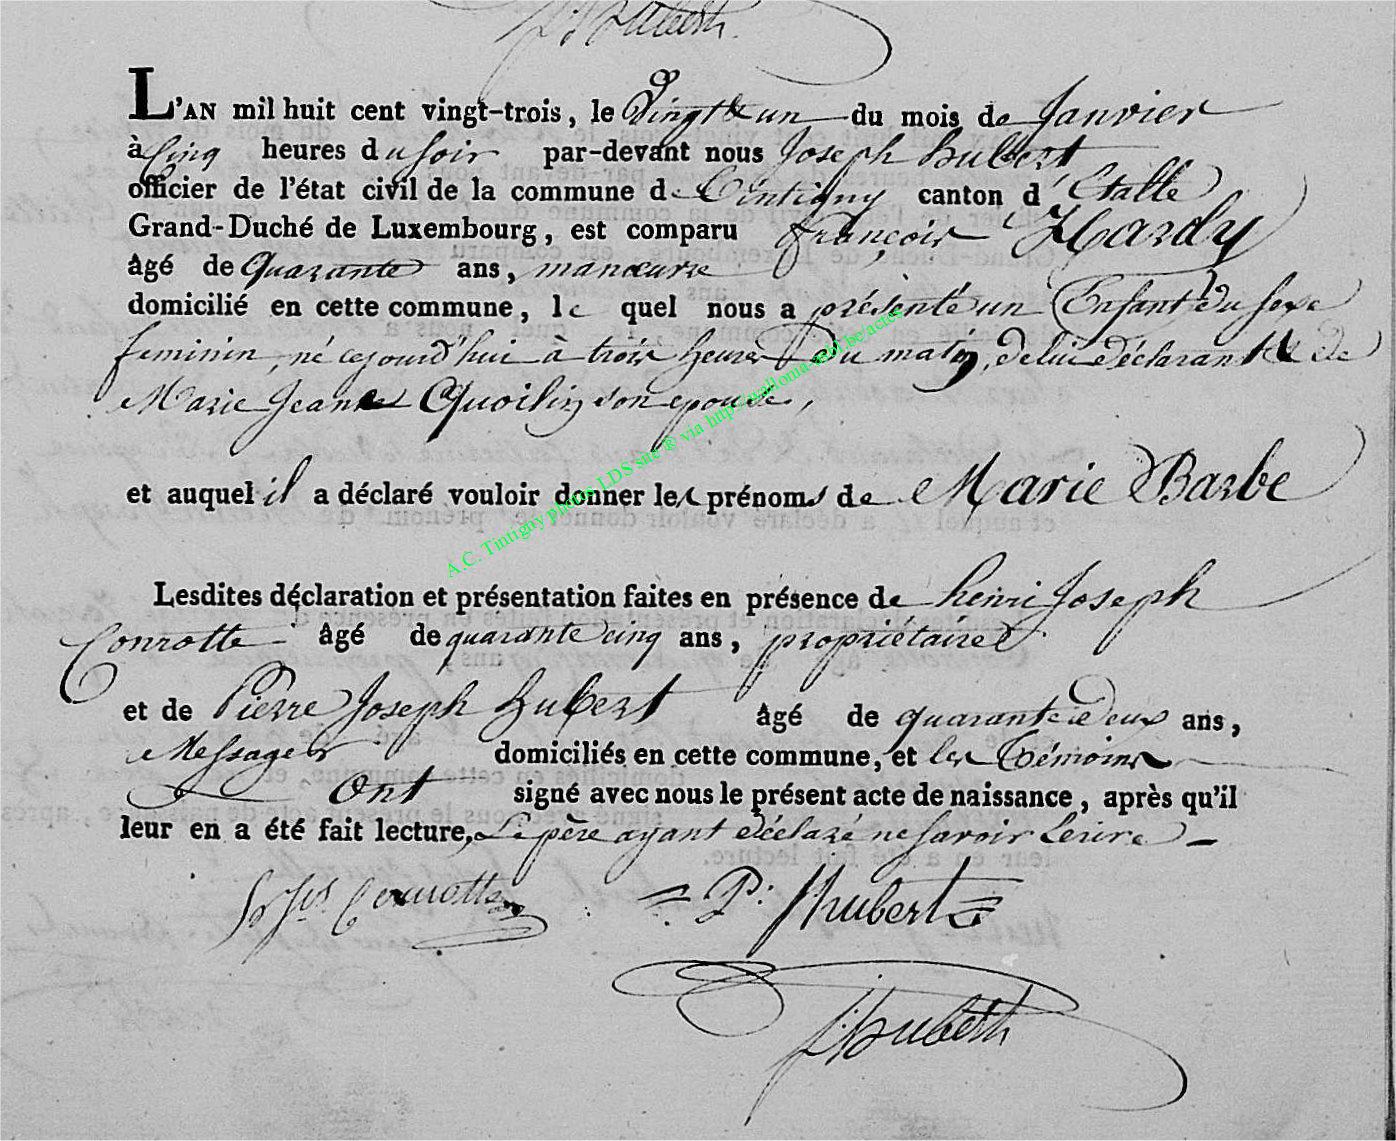 J. Hubert
L'AN mil huit cent vingt-trois, le Vingt et un du mois de Janvier
à Cinq heures du soir par-devant nous Joseph hubert
officier de l'état civil de la commune de Tintigny canton d'Etalle
Grand-Duché de Luxembourg, est comparu françois Hardy
âgé de Quarante ans, manœuvre
domicilié en cette commune, le quel nous a présenté un Enfant du sexe
feminin, né cejourd'hui à trois heures Du matin, de lui Déclarant & de
Marie Jeanne Quoilin son epouse,
et auquel il a déclaré vouloir donner les prénoms de Marie Barbe
Lesdites déclaration et présentation faites en présence de henri Joseph
Conrotte âgé de quarante cinq ans, propriétaire
et de Pierre Joseph hubert âgé de quarante Deux ans,
Messager domiciliés en cette commune, et les Témoins
Ont signé avec nous le présent acte de naissance, après qu'il
leur en a été fait lecture, Le père ayant Déclaré ne savoir Ecrire
Conrotte P. J hubert
J. Hubert
A.C. Tintigny photos LDS site ® via http://wallonia-asbl.be/actes